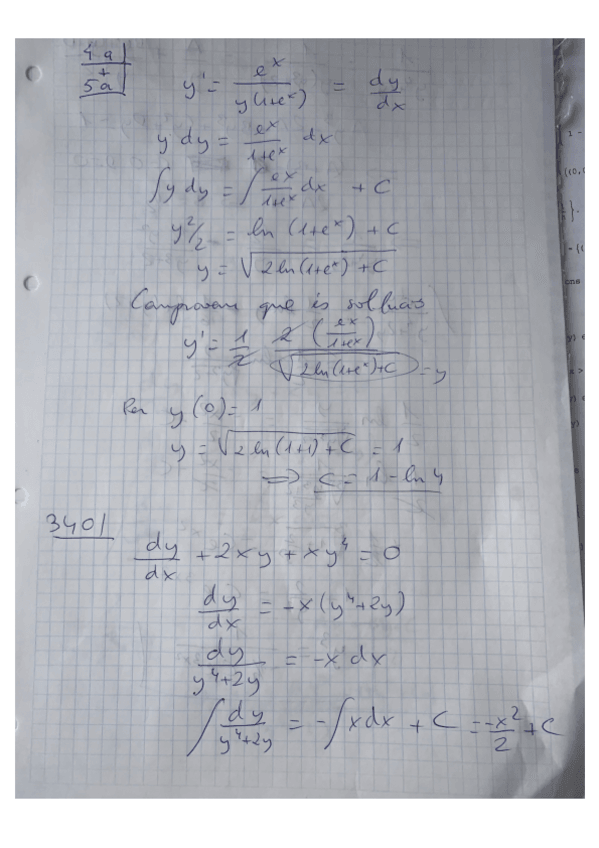 4a
+
5a
y' = e^x / y(1+e^x) = dy/dx
y dy = e^x / 1+e^x dx
∫y dy = ∫ e^x / 1+e^x dx + C
y²/2 = ln (1+e^x) + C
y = √(2 ln(1+e^x) + C)
Comprovam que és sol·lució
y' = 1/2 2 (e^x / 1+e^x) / √(2 ln(1+e^x)+C) = y
Per y(0) = 1
y = √(2 ln(1+1) + C) = 1
⇒ C = 1 - ln 4
3401
dy/dx + 2xy + xy⁴ = 0
dy/dx = -x(y⁴+2y)
dy / y⁴+2y = -x dx
∫ dy / y⁴+2y = -∫x dx + C = -x²/2 + C